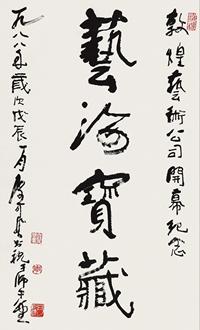 敦煌藝術公司開幕紀念
藝海寶藏
一九八八年歲次戊辰一月